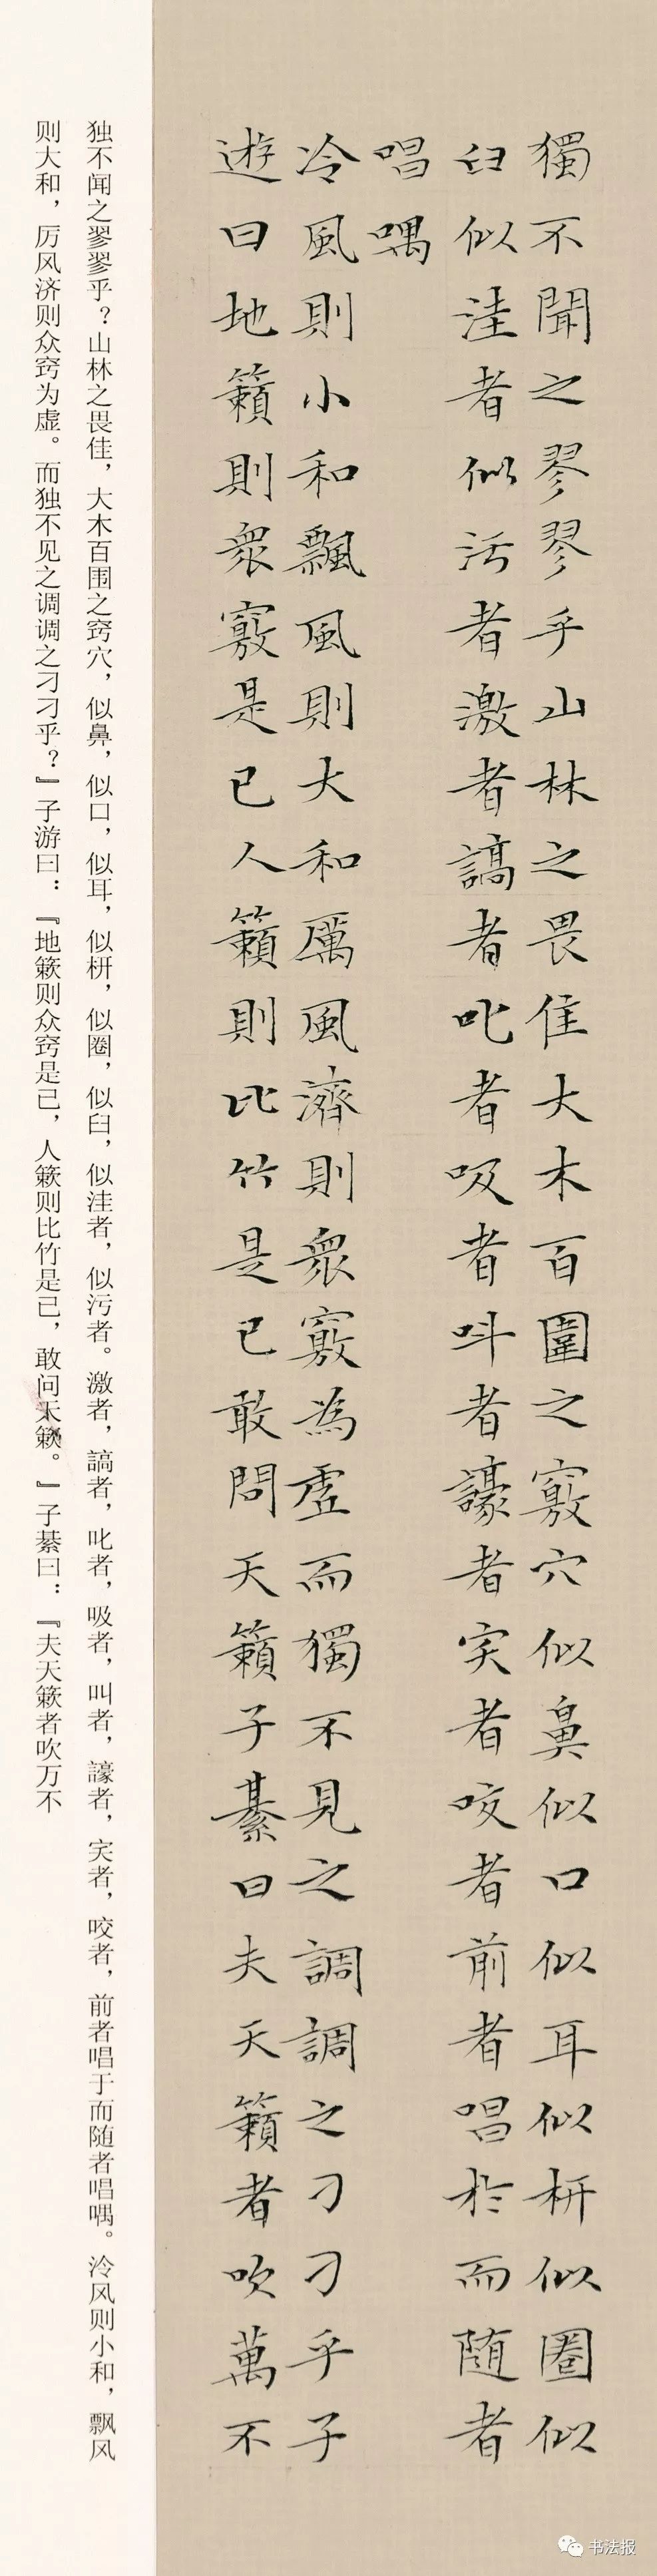 獨不聞之翏翏乎山林之畏隹大木百圍之竅穴似鼻似口似耳似枅似圈似
臼似洼者似污者激者謞者叱者吸者叫者譹者宎者咬者前者唱於而随者
唱喁
冷風則小和飄風則大和厲風濟則衆竅為虛而獨不見之調調之刁刁乎子
遊曰地籟則衆竅是已人籟則比竹是已敢問天籟子綦曰夫天籟者吹萬不
独不闻之翏翏乎？山林之畏佳，大木百围之窍穴，似鼻，似口，似耳，似枅，似圈，似臼，似洼者，似污者。激者，謞者，叱者，吸者，叫者，譹者，宎者，咬者，前者唱于而随者唱喁。泠风则小和，飘风
则大和，厉风济则众窍为虚。而独不见之调调之刁刁乎？』子游曰：『地籁则众窍是已，人籁则比竹是已，敢问天籁。』子綦曰：『夫天籁者吹万不
书法报